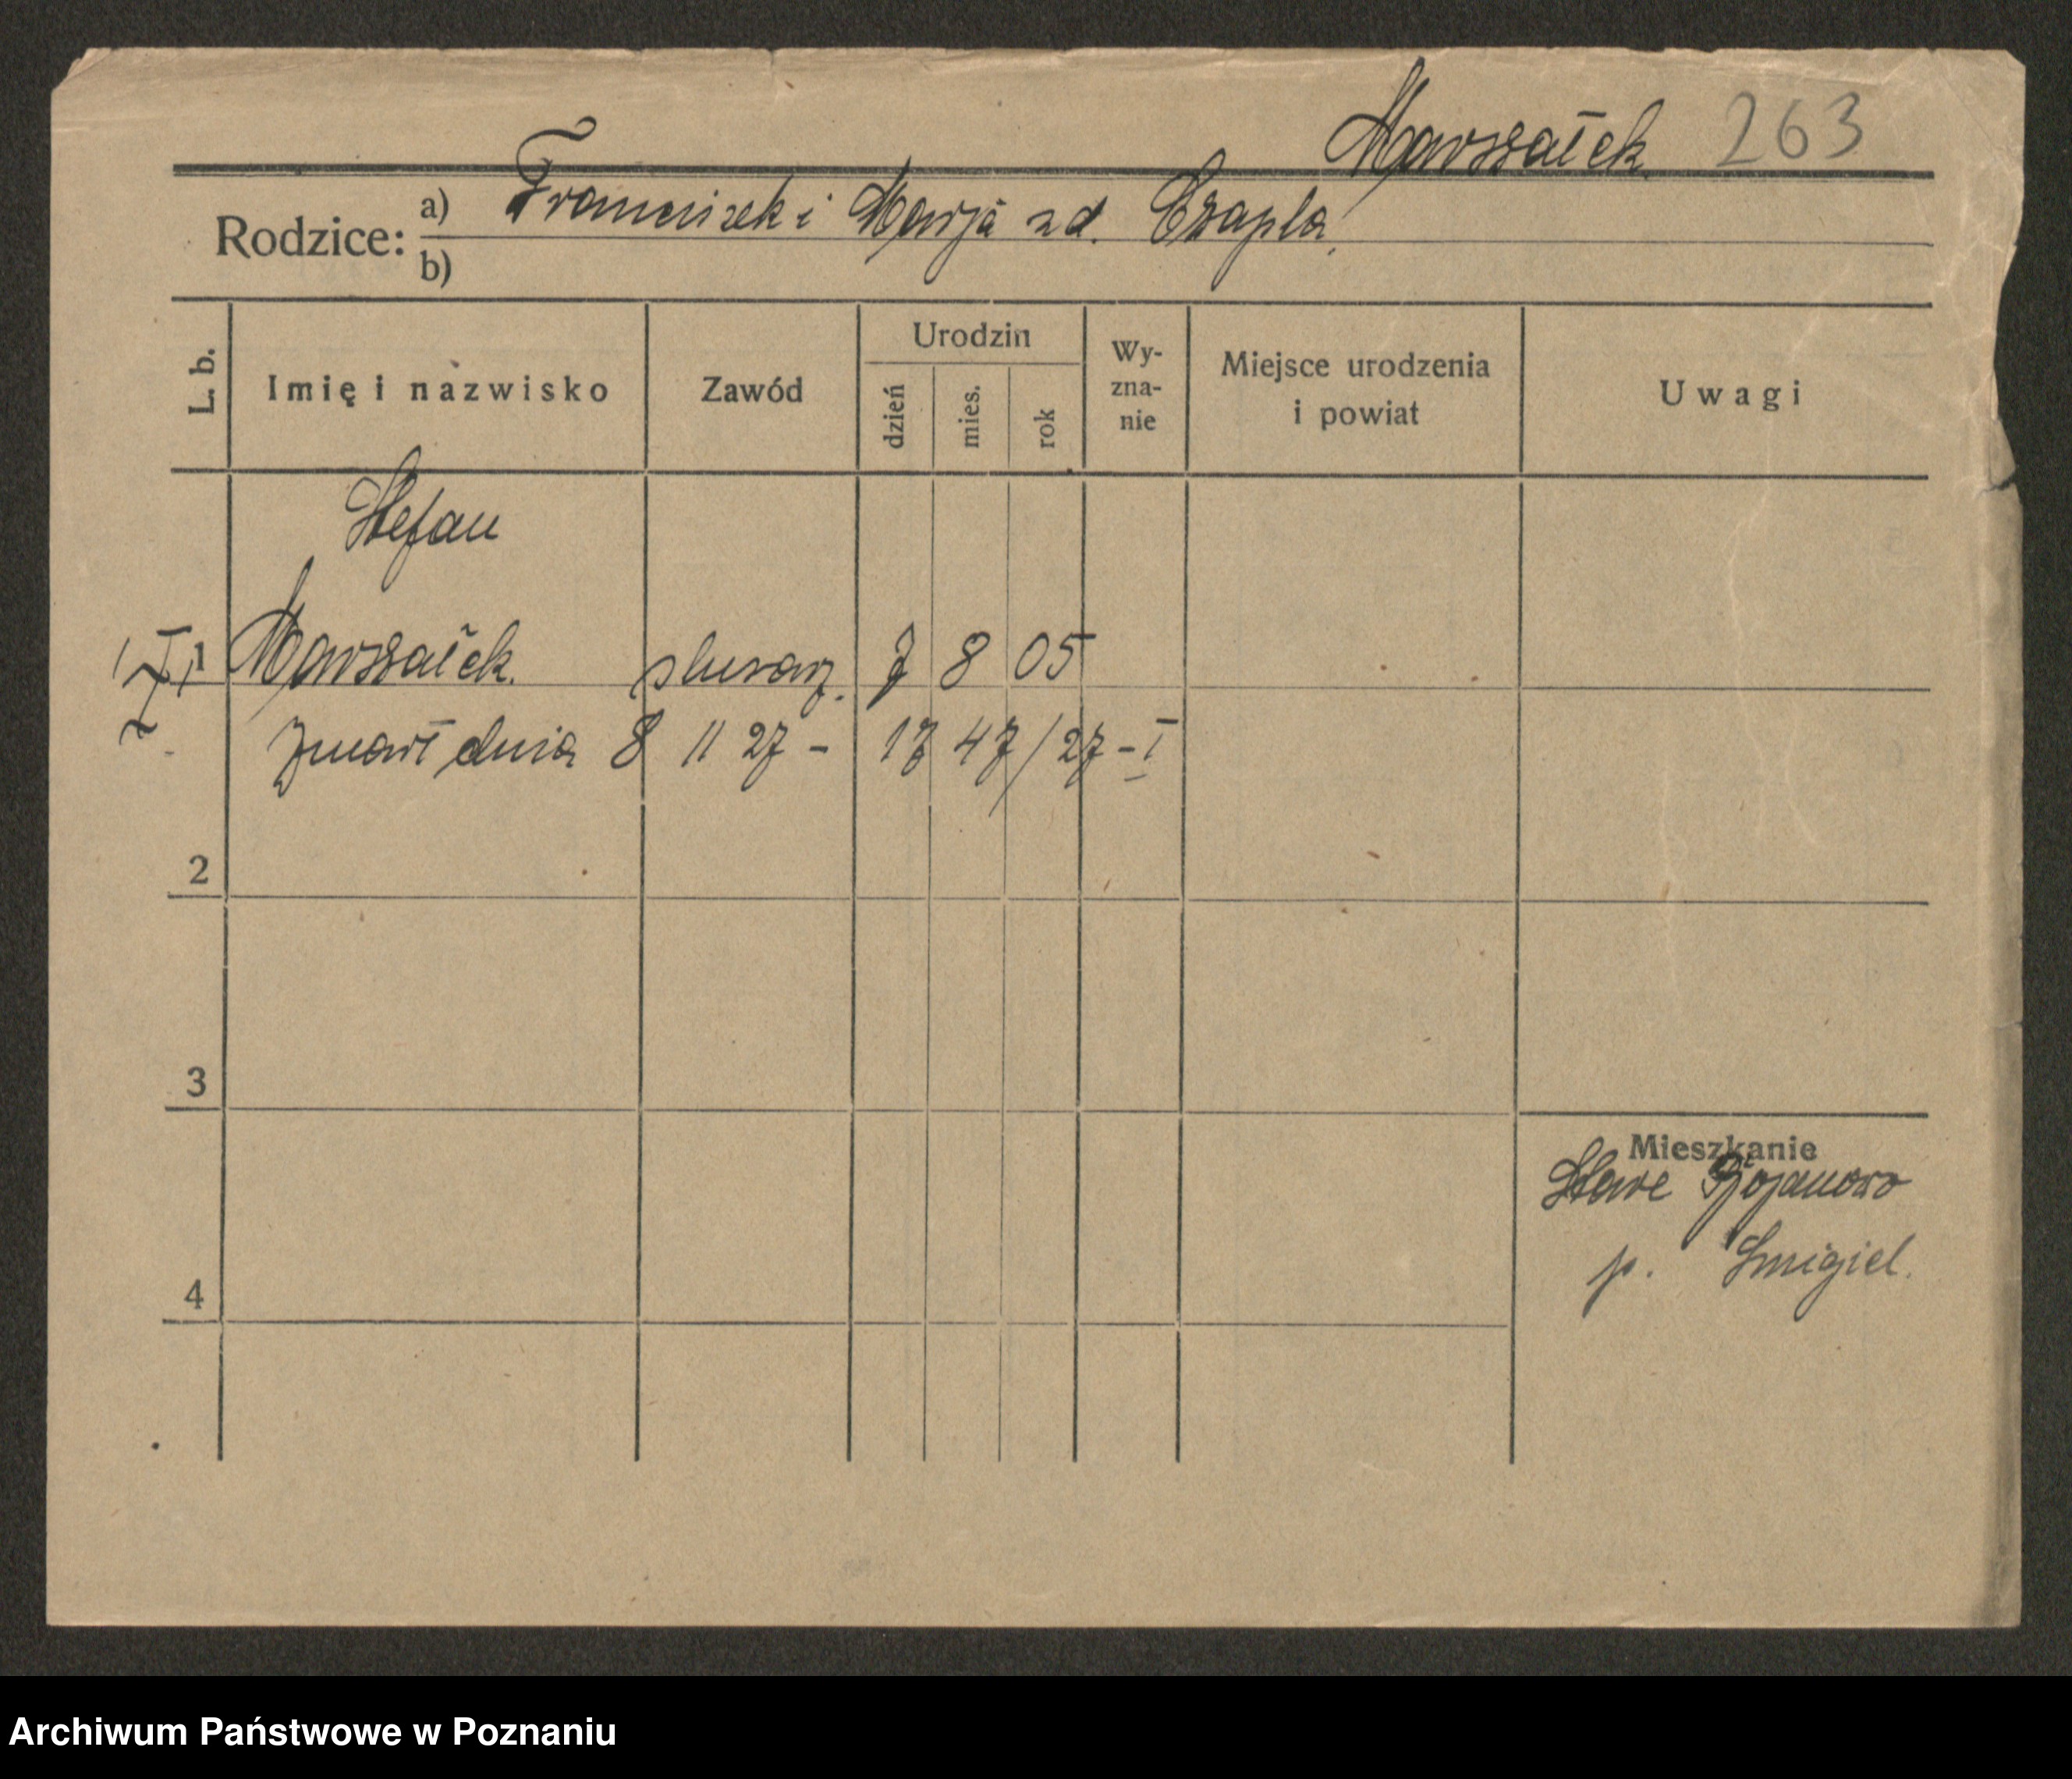 Marszałek 263
Rodzice: a) Franciszek i Marja zd. Czapla
b)
L. b. Imię i nazwisko Zawód Urodzin dzień mies. rok Wyznanie Miejsce urodzenia i powiat Uwagi
Stefan
1 Marszałek. ślusarz. 7 8 05
zmarł dnia 8 11 27 – 1747/27 – I
2
3
Mieszkanie
Stare Bojanowo
p. Śmigiel.
4
Archiwum Państwowe w Poznaniu